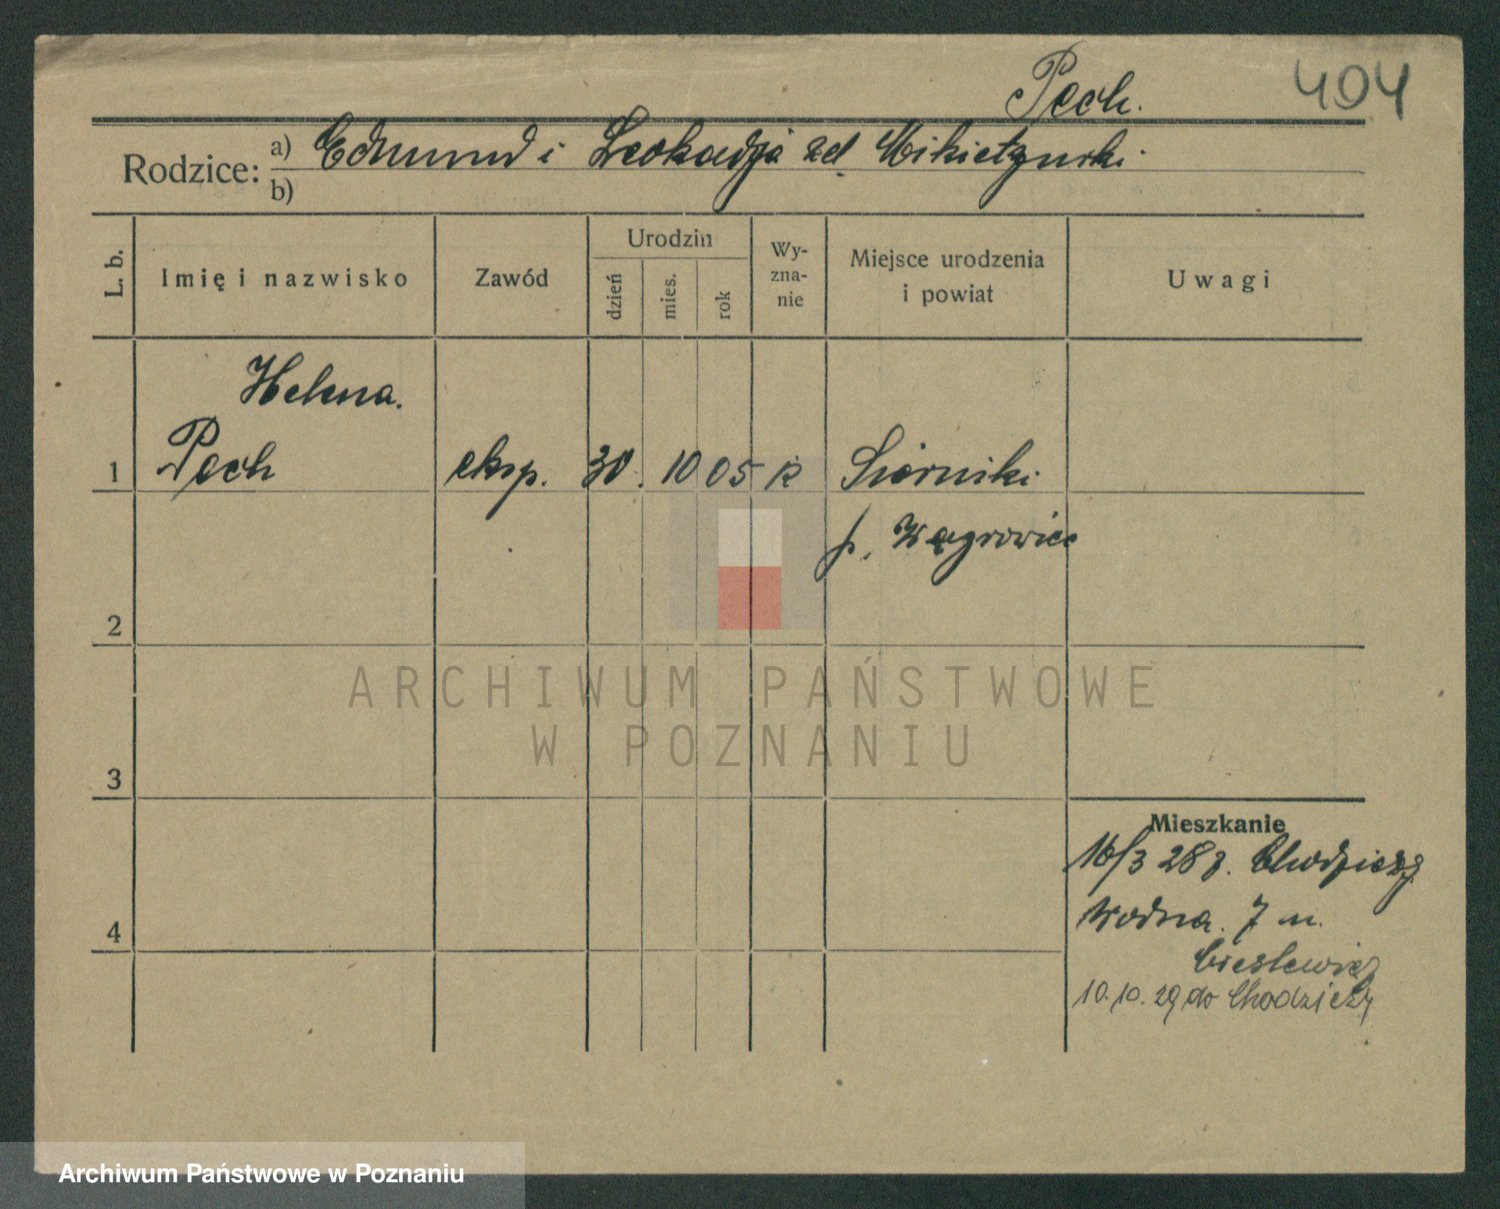 Pech. 494
Rodzice: a) Edmund i Leokadja zd. Mikietynski.
b)
L. b. Imię i nazwisko Zawód Urodzin dzień mies. rok Wy-zna-nie Miejsce urodzenia i powiat Uwagi
Helena.
1 Pech eksp. 30. 10 05 k Siernniki.
p. Wągrowiec
2
ARCHIWUM PAŃSTWOWE
W POZNANIU
3
Mieszkanie
16/3 28 z. Chodzieży
4 Wodna. 7 m.
10.10.29 do Chodzieży
Archiwum Państwowe w Poznaniu